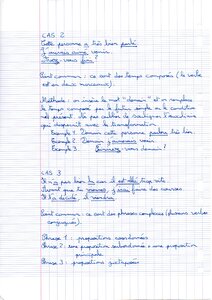 CAS 2
Cette personne a très bien parlé
J'aurais aimé venir.
Avez-vous fini ?
Point commun : ce sont des temps composés (le verbe
est en deux morceaux).
Méthode : on insère le mot "demain" et on remplace
le temps composé par le futur simple ou le condition
nel présent. Ne pas oublier de souligner l'auxiliaire
qui disparaît avec la transformation.
Exemple 1 : Demain cette personne parlera très bien.
Exemple 2 : Demain j'aimerais venir
Exemple 3 : vous demain ?
CAS 3
Il n'a pas bien lu car il est allé trop vite
Pendant que tu , j' faire des courses
Il l'a décidé, il viendra
Point commun : ce sont des phrases complexes (plusieurs verbes
conjugués).
Phrase 1 : propositions coordonnées
Phrase 2 : une proposition subordonnée + une proposition
principale
Phrase 3 : propositions juxtaposées